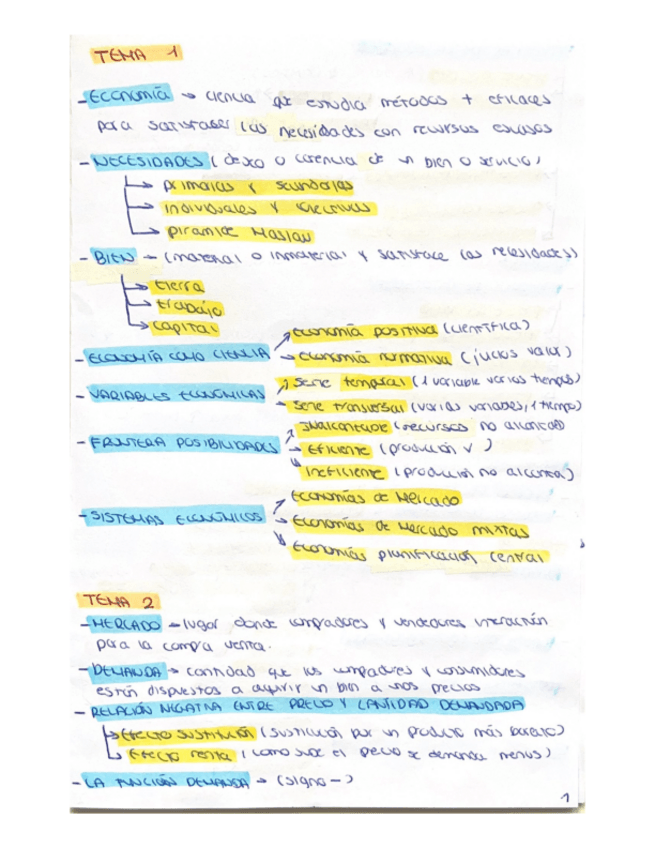 TEMA 1
- ECONOMÍA → ciencia que estudia métodos + eficaces
para satisfaser las necesidades con recursos escasos
- NECESIDADES (deseo o carencia de un bien o servicio)
→ primarias y secundarias
→ individuales y colectivas
→ piramide Maslow
- BIEN → (material o inmaterial y satisface las necesidades)
→ tierra
→ trabajo
→ capital
- ECONOMÍA COMO CIENCIA
→ Economía positiva (científica)
→ Economía normativa (juicios valor)
- VARIABLES ECONÓMICAS
→ Serie temporal (1 variable varios tiempos)
→ Serie transversal (varias variables, 1 tiempo)
- FRONTERA POSIBILIDADES
→ Inalcanzable (recursos no alcanza)
→ Eficiente (producción ✓)
→ Ineficiente (producción no alcanza)
- SISTEMAS ECONÓMICOS
→ Economías de Mercado
→ Economías de Mercado mixtas
→ Economías planificación central
TEMA 2
- MERCADO → lugar donde compradores y vendedores interactúan
para la compra venta.
- DEMANDA → cantidad que los compradores y consumidores
están dispuestos a adquirir un bien a unos precios
- RELACIÓN NEGATIVA ENTRE PRECIO Y CANTIDAD DEMANDADA
→ Efecto sustitución (sustitución por un producto más barato)
→ Efecto renta (como sube el precio se demanda menos)
- LA FUNCIÓN DEMANDA → (signo -)
1